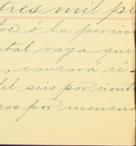 tres mil pe
os ó la porcion
tal vaya que
, causará ré
il seis por cient
ros por mensua